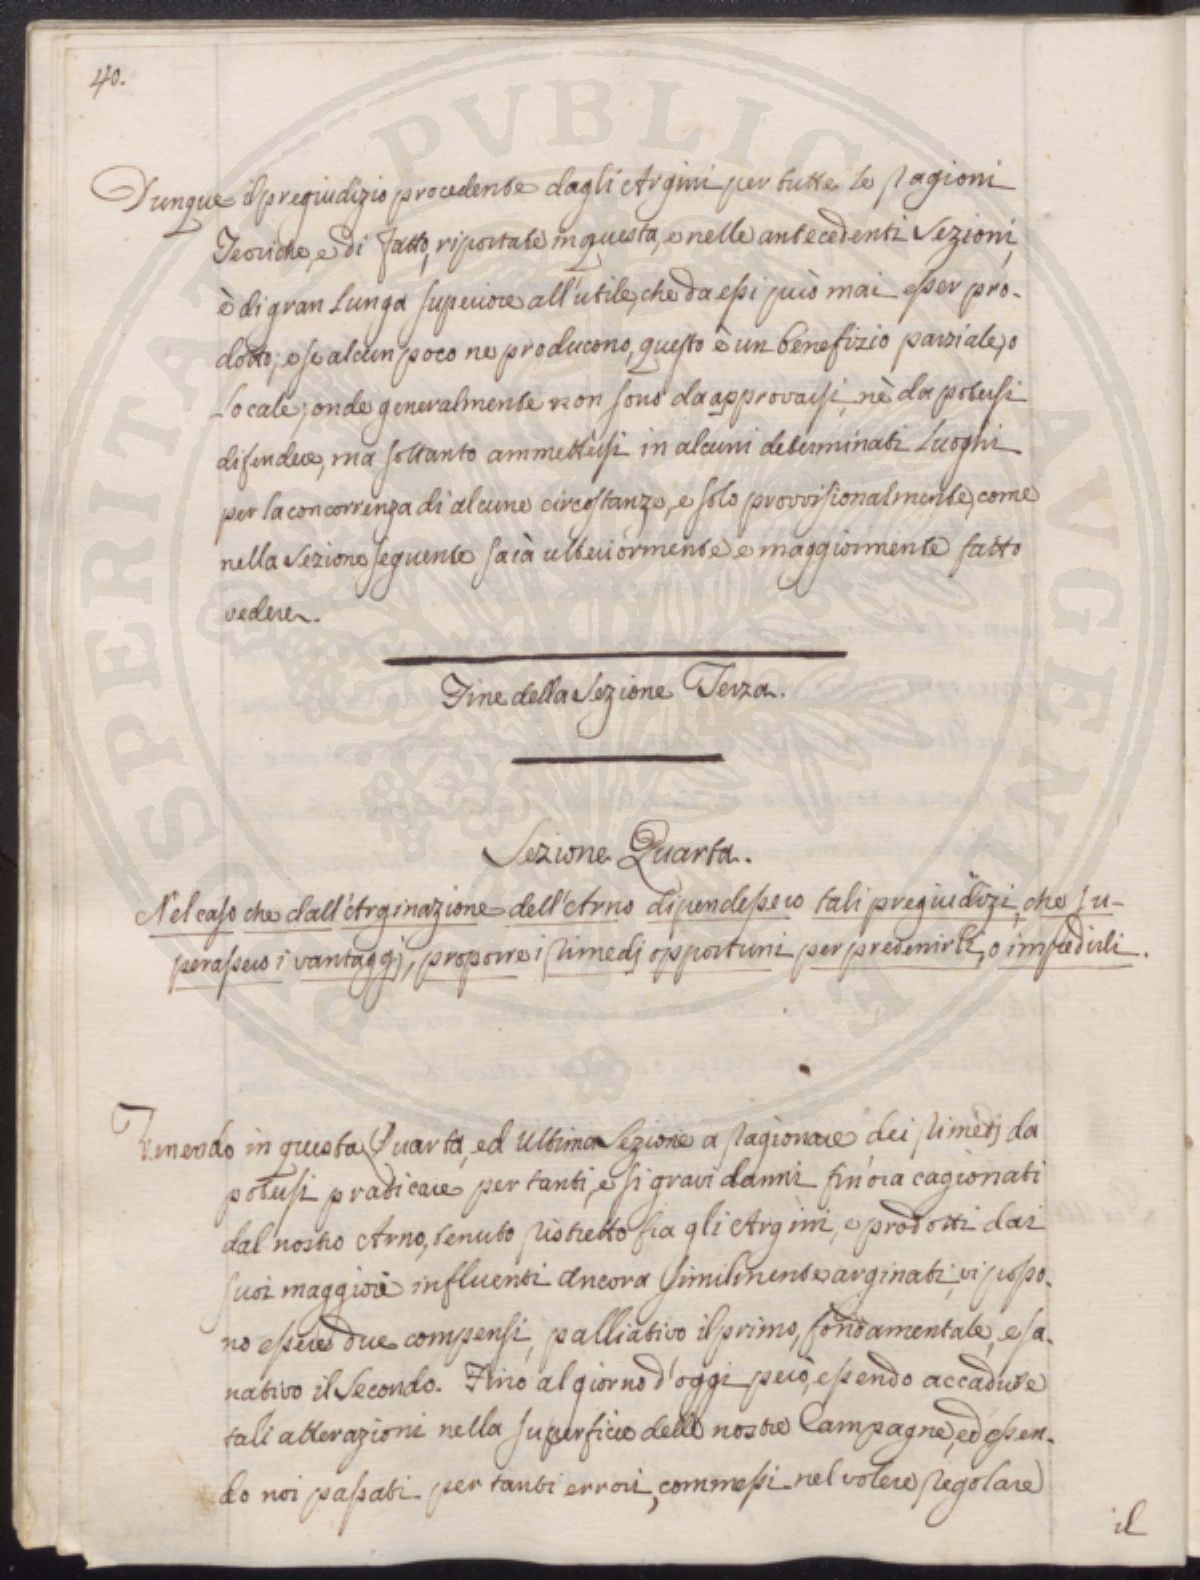 40.
Dunque il pregiudizio procedente dagli Argini per tutte le ragioni
Teoriche, e di fatto, riportate in questa, e nelle antecedenti Sezioni,
è di gran lunga superiore all'utile, che da essi può mai esser pro-
dotto; e se alcun poco ne producono, questo è un benefizio parziale, o
Locale; onde generalmente non sono da approvarsi, nè da potersi
difendere, ma soltanto ammettersi in alcuni determinati Luoghi
per la concorrenza di alcune circostanze, e solo provvisionalmente, come
nella Sezione seguente sarà ulteriormente e maggiormente fatto
vedere.
Fine della Sezione Terza.
Sezione Quarta.
Nel caso che dall'Arginazione dell'Arno dipendessero tali pregiudizi, che su-
perassero i vantaggj, proporre i rimedj opportuni per prevenirli, o impedirli.
Venendo in questa Quarta, ed Ultima Sezione a ragionare dei rimedj da
potersi praticare per tanti, e sì gravi danni fin'ora cagionati
dal nostro Arno, tenuto ristretto fra gli Argini, e prodotti dai
suoi maggiori influenti ancora similmente arginati, vi posso-
no essere due compensi, palliativo il primo, fondamentale, e sa-
nativo il Secondo. Fino al giorno d'oggi però, essendo accadute
tali alterazioni nella superficie delle nostre Campagne, ed essen-
do noi passati per tanti errori, commessi nel volere regolare
il
PROSPERITATI PVBLICAE AVGENDAE